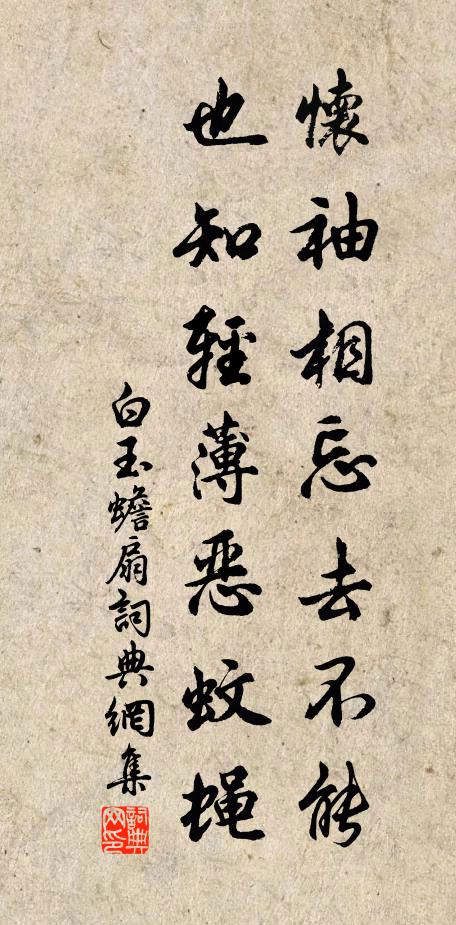 懷袖相忘去不能
也知輕薄惡蚊蝇
白玉蟾扇詞典網集
詞典网印